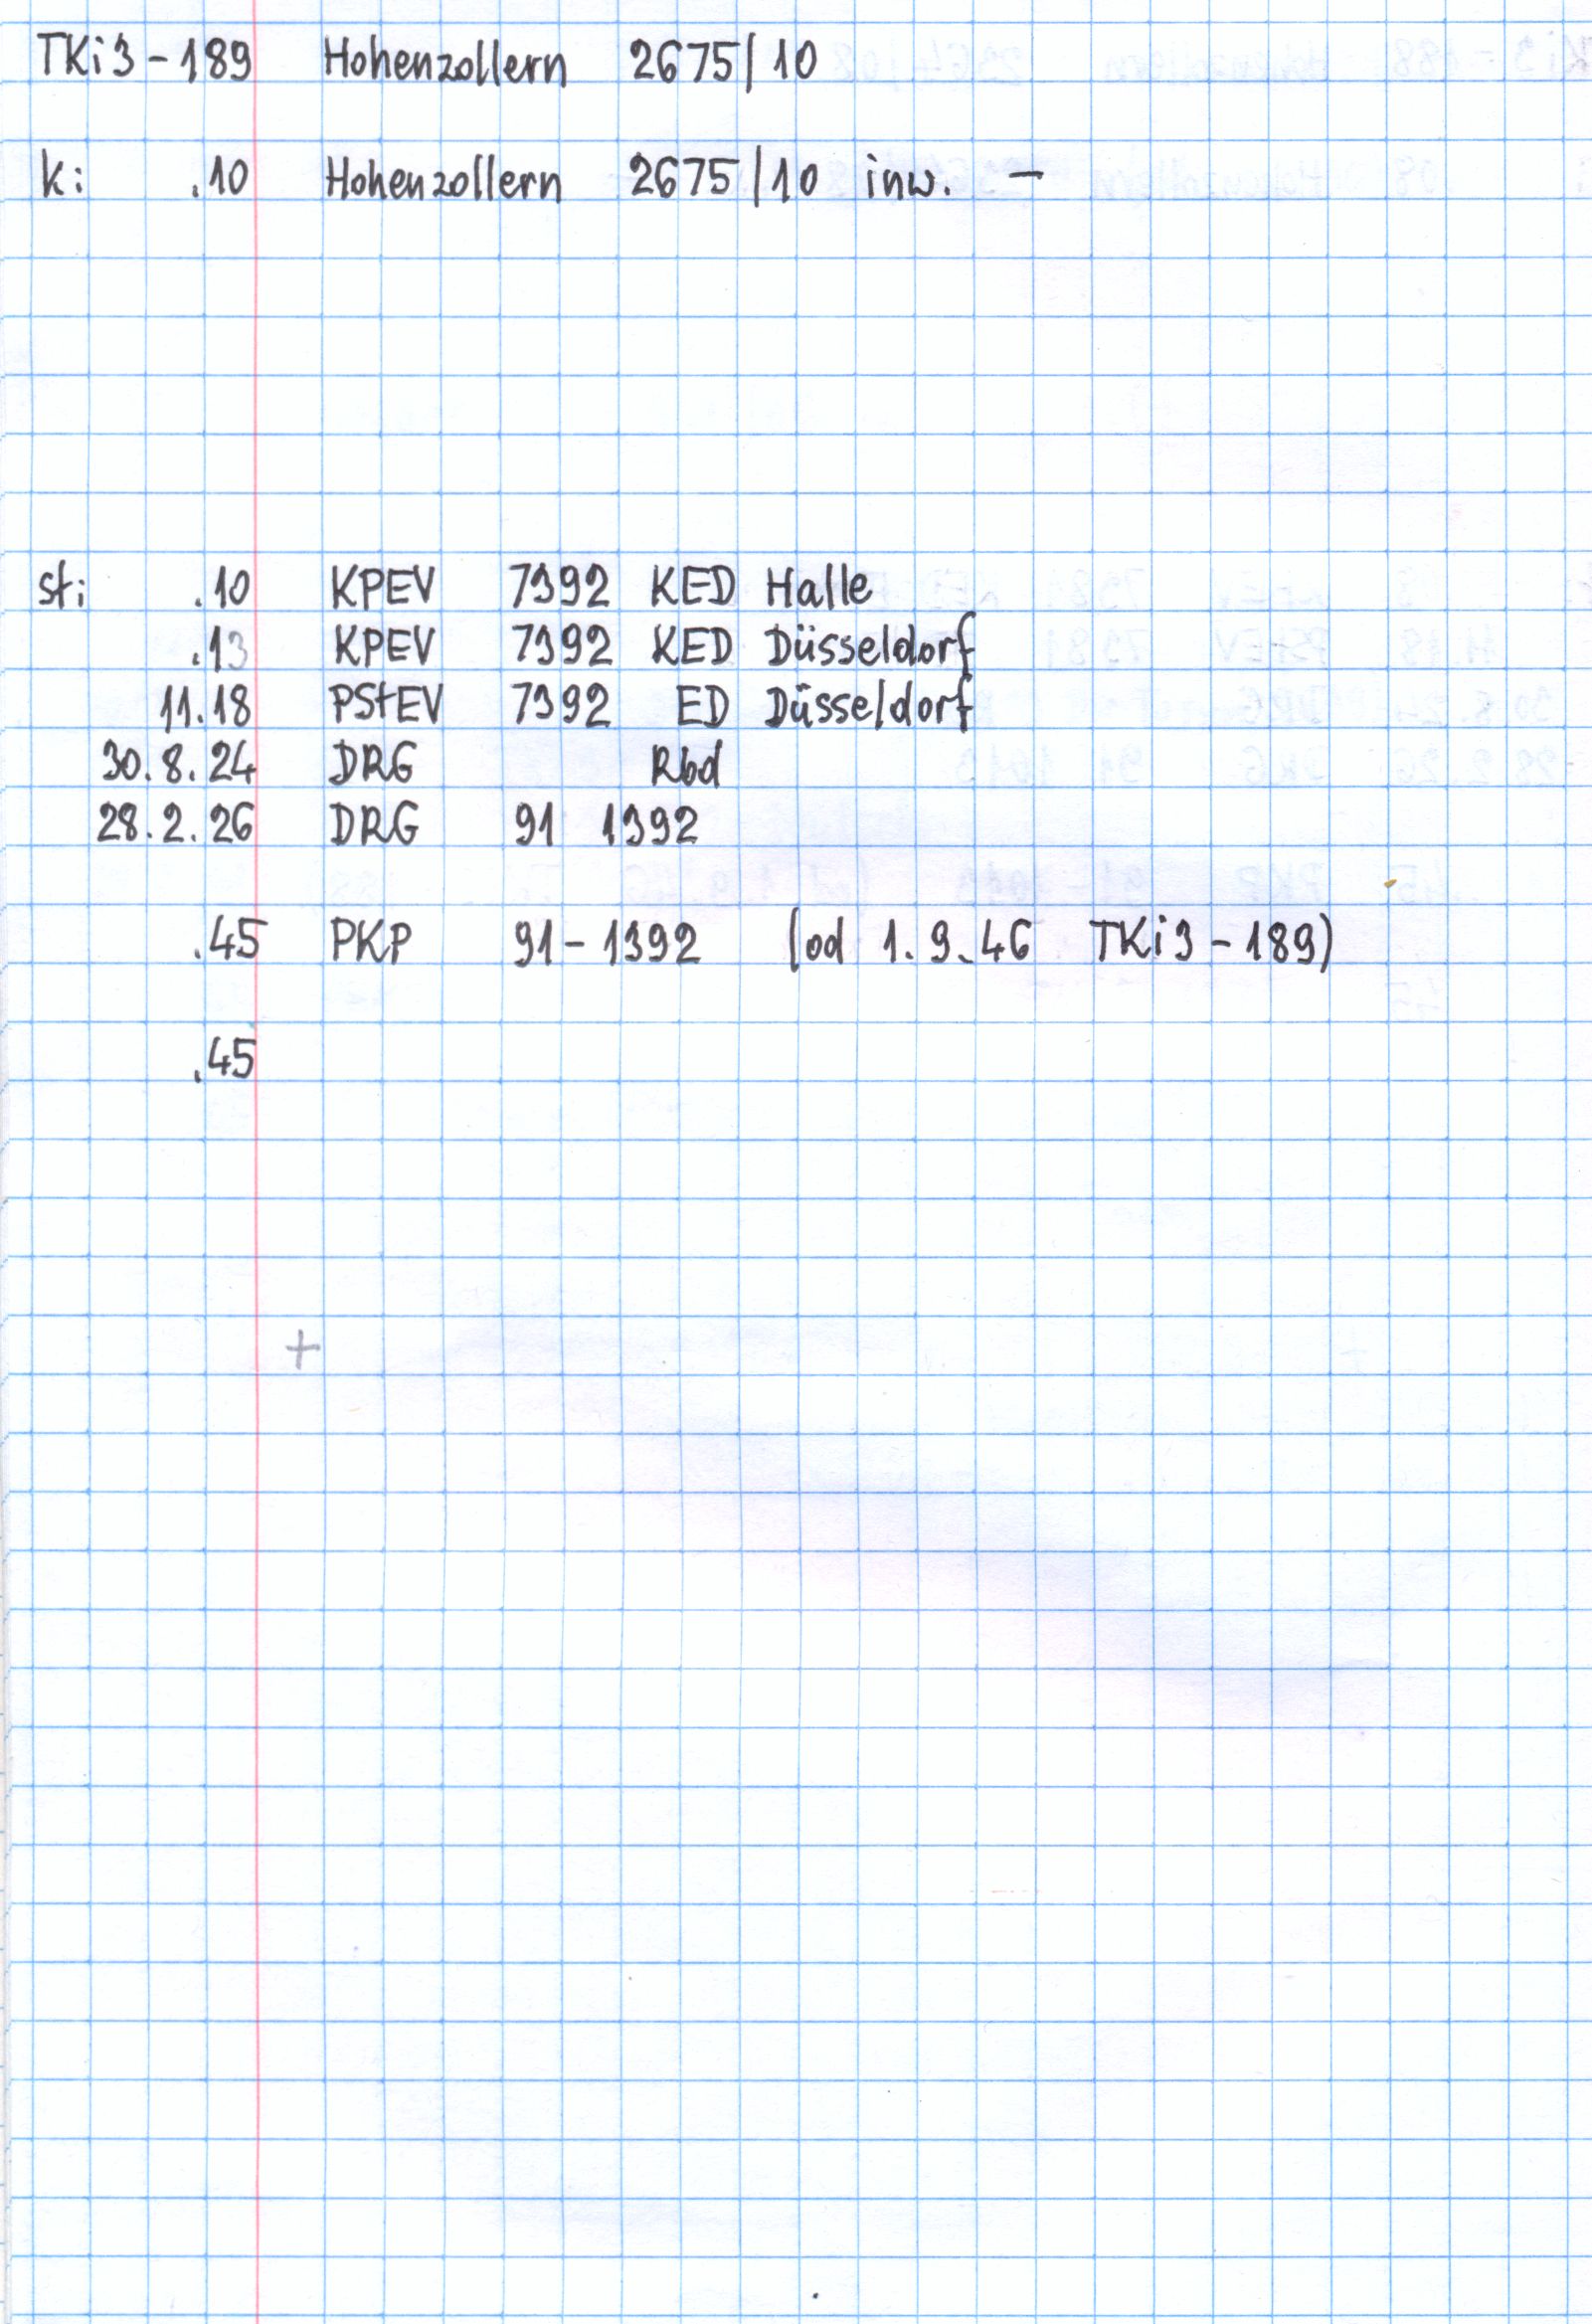 TKi3-189 Hohenzollern 2675/10
k: .10 Hohenzollern 2675/10 inw. –
st: .10 KPEV 7392 KED Halle
.13 KPEV 7392 KED Düsseldorf
11.18 PStEV 7392 ED Düsseldorf
30.8.24 DRG Rbd
28.2.26 DRG 91 1392
.45 PKP 91-1392 (od 1.9.46 TKi3-189)
.45
+